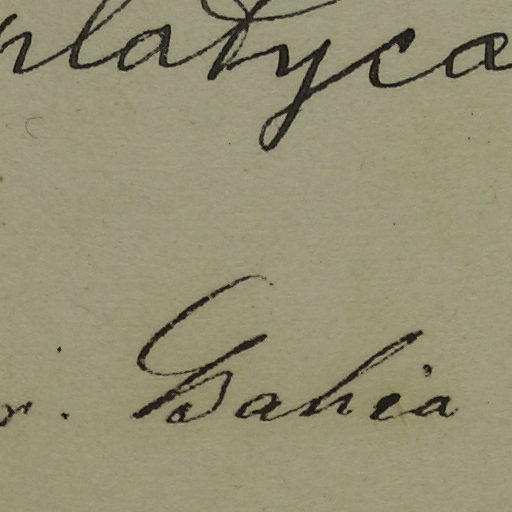 platyca
r. Bahia